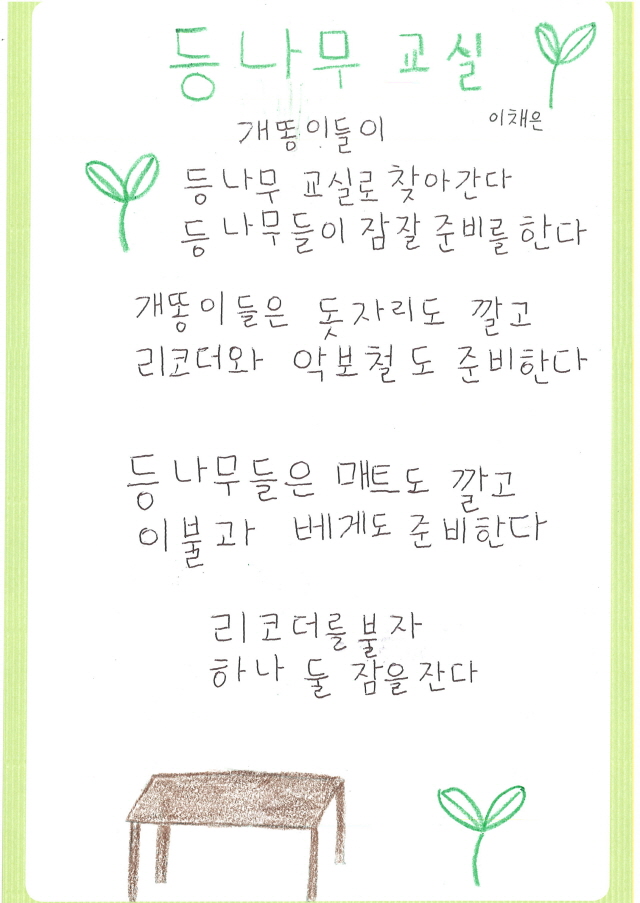 등나무 교실
이채은
개똥이들이
등나무 교실로 찾아간다
등나무들이 잠잘 준비를 한다
개똥이들은 돗자리도 깔고
리코더와 악보철도 준비한다
등나무들은 매트도 깔고
이불과 베게도 준비한다
리코더를 불자
하나 둘 잠을 잔다